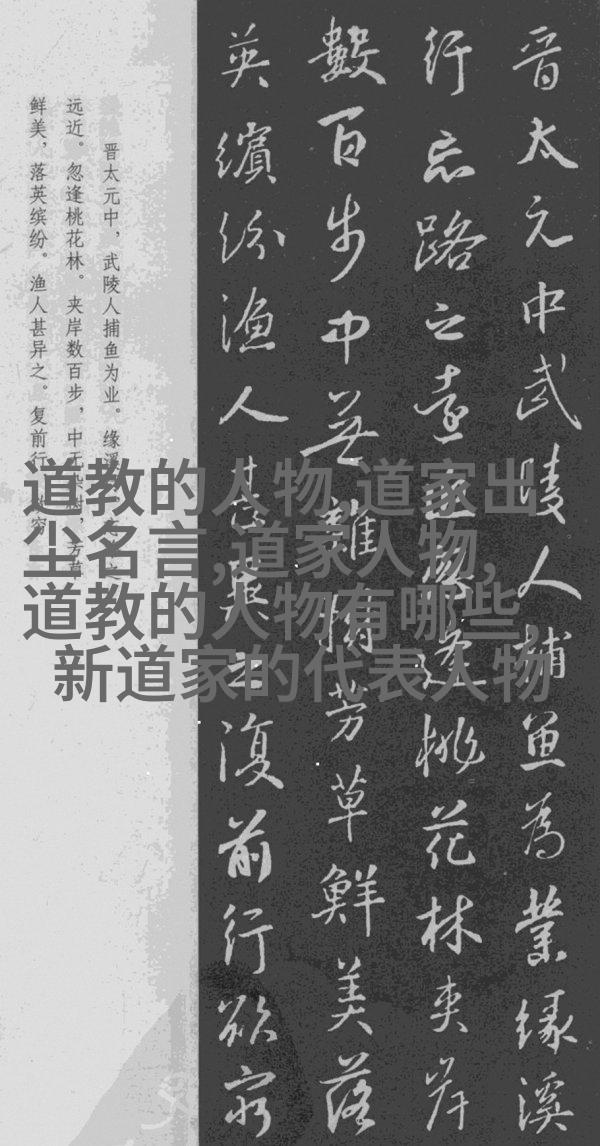 晋太元中武陵人捕魚為業緣溪
行忘路之遠近忽逢桃花林夾岸
數百步中無雜樹芳草鮮美落
英繽紛漁人甚異之復前行欲窮
晋太元中，武陵人捕鱼为业。缘溪
远近。忽逢桃花林。夹岸数百步，中无杂树，芳草
鲜美，落英缤纷。渔人甚异之。复前行
道教的人物,道家出
尘名言,道家人物,
道教的人物有哪些,
新道家的代表人物